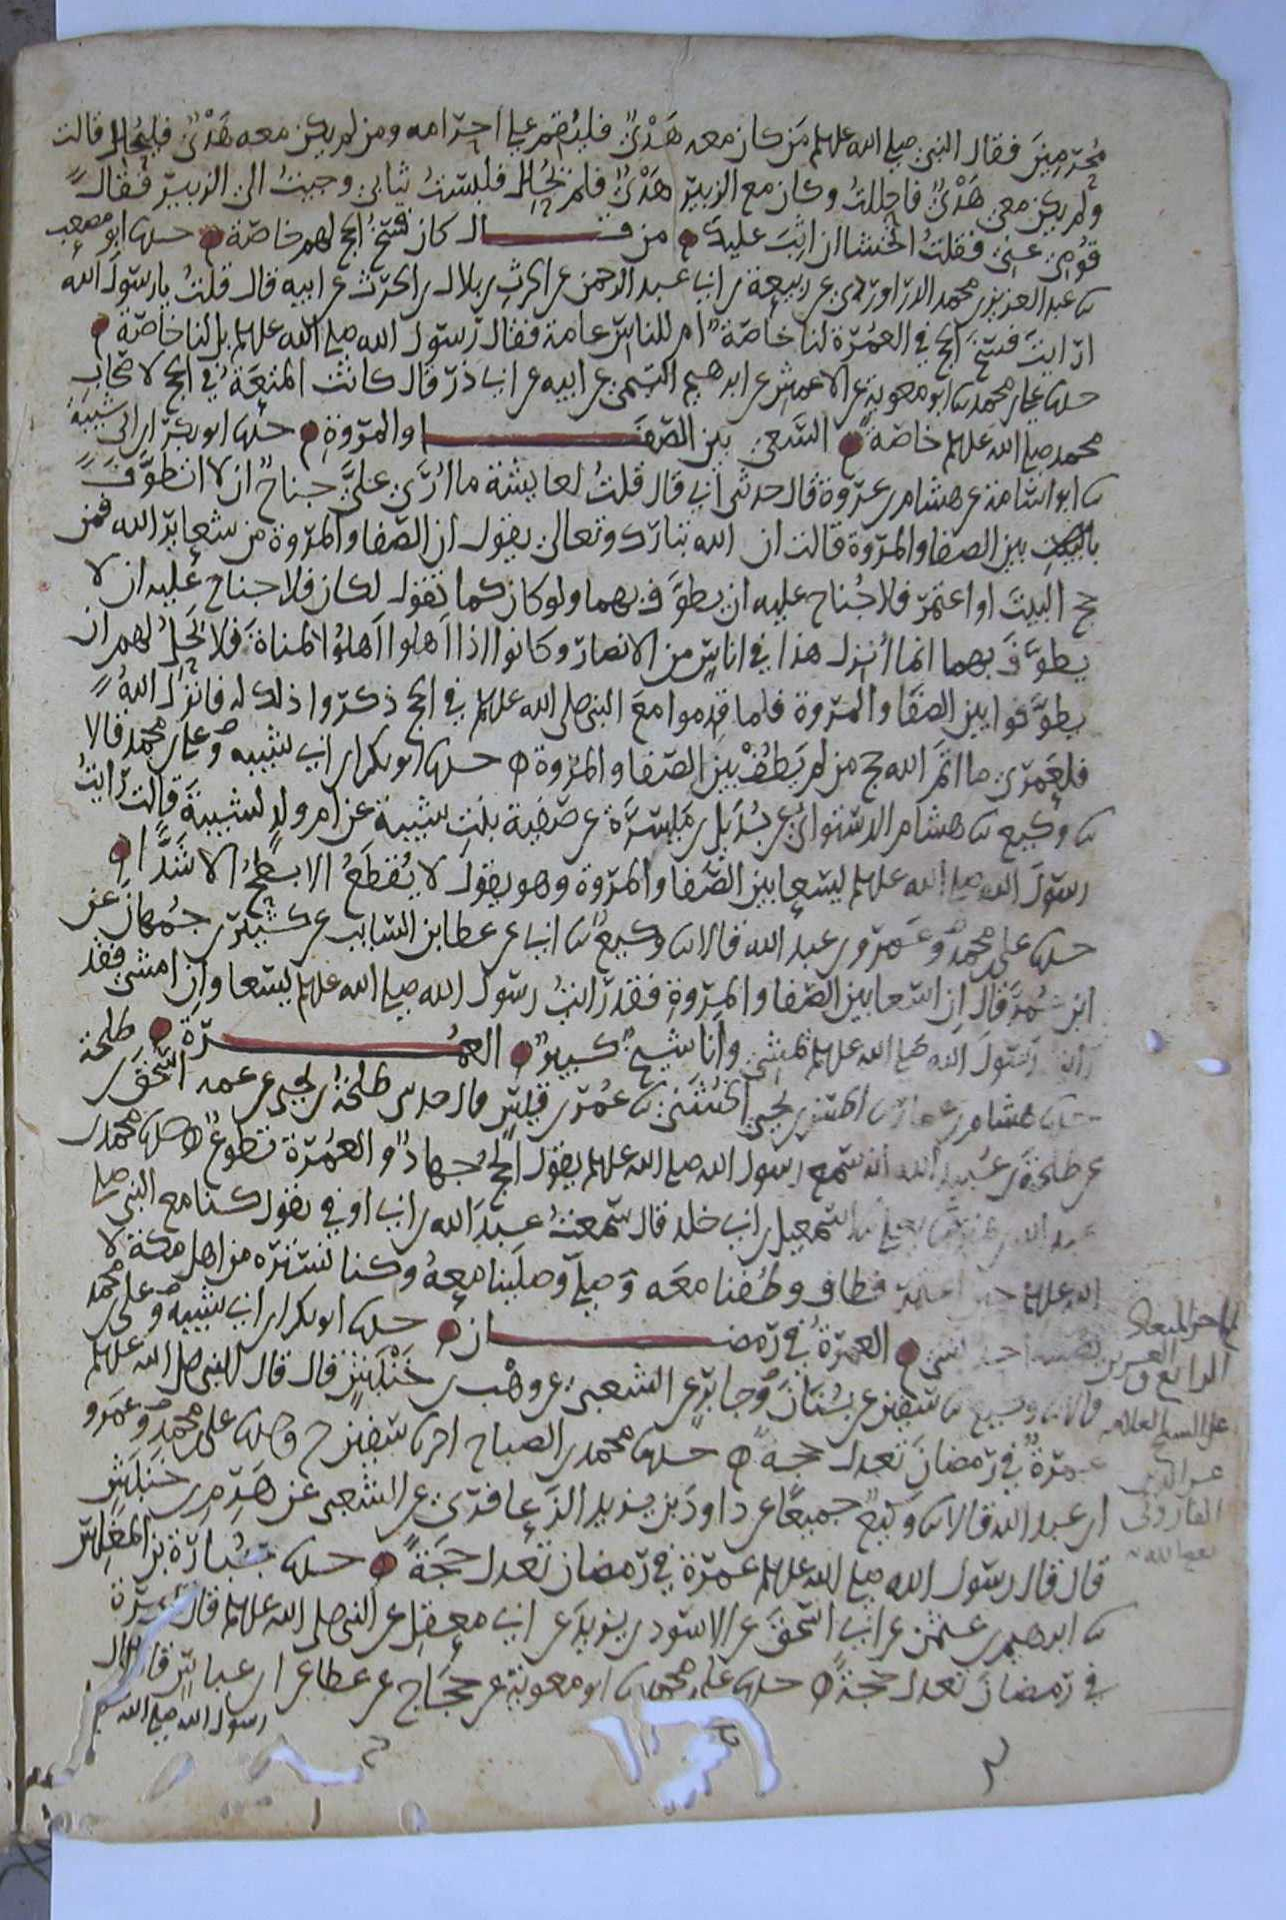 مُحْرِمِينَ فقال النبي صلى الله علىه وسلم مَن كان معه هَدْيٌ فليُقم على احرامه ومن لم يكن معه هَدْيٌ فليُحلل قالت
ولم يكن معي هَدْيٌ فاحللتُ وكان مع الزبير هَدْيٌ فلم يُحلل فلبستُ ثيابي وجيتُ الى الزبير فقال
قُومي عني فقلتُ اتخشا ان اثبَ عليك من قال كان فسْخُ الحج لهم خاصّة حدثنا ابو مصعب
ثنا عبد العزيز بن محمد الدراوردي عن ربيعة بن ابي عبد الرحمن عن الحرث بن بلال بن الحرث عن ابيه قال قلتُ يا رسول الله
ارايتَ فسْخَ الحج في العُمْرة لنا خاصّةً ام للناس عامة فقال رسول الله صلى الله علىه وسلم بل لنا خاصّة
حدثنا على بن محمد ثنا ابو معوية عن الاعمش عن ابرهيم التيمي عن ابيه عن ابي ذرّ قال كانت المتعَةُ في الحج لاصحاب
محمد صلى الله علىه وسلم خاصّةً السّعي بين الصّفا والمروة حدثنا ابو بكر بن ابي شيبة
ثنا ابو اسامة عن هشام بن عروة قال حدثني ابي قال قلتُ لعايشة ما اُرى عليَّ جناحٌ ان لا اتطوّفَ
بين الصفا والمروة قالت ان الله تبارك وتعالى يقول ان الصّفا والمروة من شعاير الله فمن
حج البيتَ او اعتمر فلا جُناح عليه ان يطوَّف بهما ولو كان كما تقول لكان فلا جناح عليه ان لا
يطوَّفَ بهما انما اُنزل هذا في اناسٍ من الانصار وكانوا اذا اَهَلوا اَهلوُا لمناةَ فلا يَحلّ لهم ان
يطوَّفوا بين الصّفا والمروة فلما قدِموا مع النبي صلى الله علىه وسلم في الحج ذكروا ذلك له فانزل اللهُ
فلعَمري ما اتمّ الله حج من لم يَطُفْ بين الصّفا والمروة حدثنا ابو بكر بن ابي شيبه وعلى بن محمد قالا
ثنا وكيع ثنا هشام الدستوائيّ عن بُدَيل بن مَيسَرَة عن صَفية بنت شيبة عن ام ولدٍ لشيبةَ قالت رايتُ
رسولَ الله صلى الله علىه وسلم يسعا بين الصّفا والمروة وهو يقول لا يُقطَعُ الابطحُ الا شَدًّا
حدثنا على بن محمد وعَمرو بن عبد الله قالا ثنا وكيعٌ ثنا ابي عن عطا بن السايب عن كثير بن جُمهان عن
ابن عُمر قال اِن اسعا بين الصّفا والمروة فقد رايتُ رسول الله صلى الله علىه وسلم يسعا وان امشي فقد
رايتُ رسولَ الله صلى الله علىه وسلم يمشي وانا شيخٌ كبيرٌ العمرة
حدثنا هشام بن عمار ثنا الحسن بن يحيى الخُشَني ثنا عُمر بن قيس قال حدثني طلحة بن يحيى عن عمه اسحق بن طلحة
عن طلحة بن عُبيد الله انه سمع رسول الله صلى الله علىه وسلم يقول الحجّ جهادٌ والعُمْرة تطوعٌ حدثنا محمد بن
عبد الله بن نمير ثنا يعلى ثنا اسمعيل بن ابي خلد قال سمعتُ عبدَ الله بن ابي اوفي يقول كنا مع النبي صلى
الله علىه وسلم حين اعتمر فطاف وطُفنا معَه وَصلى وصلينا معهُ وكنا نستُره من اهل مكة لا
يُصيبه احد بشي العمرة في رمضان حدثنا ابو بكر بن ابي شيبه وعلى بن محمد
قالا ثنا وكيع ثنا سفين عن بَيَان وجابر عن الشعبي عن وهْب بن خَنْبَشٍ قال قال النبي صلى الله علىه وسلم
عمرةٌ في رمضان تعدل حجةً حدثنا محمد بن الصباح انبا سفين ح وحدثنا على بن محمد وعَمرو
بن عبد الله قالا ثنا وكيعٌ جميعًا عن داود بن يزيد الزَعافري عن الشعبي عن هَرِم بن خَنبَش
قال قال رسول الله صلى الله علىه وسلم عمرة في رمضان تعدل حَجةً حدثنا جُبارة بن المغلس
ثنا ابرهيم بن عثمن عن ابي اسحق عن الاسود بن يزيدَ عن ابي معقل عن النبي صلى الله علىه وسلم قال عمرة
في رمضان تعدل حجةً حدثنا على بن محمد ثنا ابو معوية عن حجاج عن عطا عن ابن عباس قال قال
رسول الله صلى الله علىه وسلم
الميعاد
الرابع والعشرين
على الشيخ العلامه
عز الدين
الفاروثي
نفع الله به